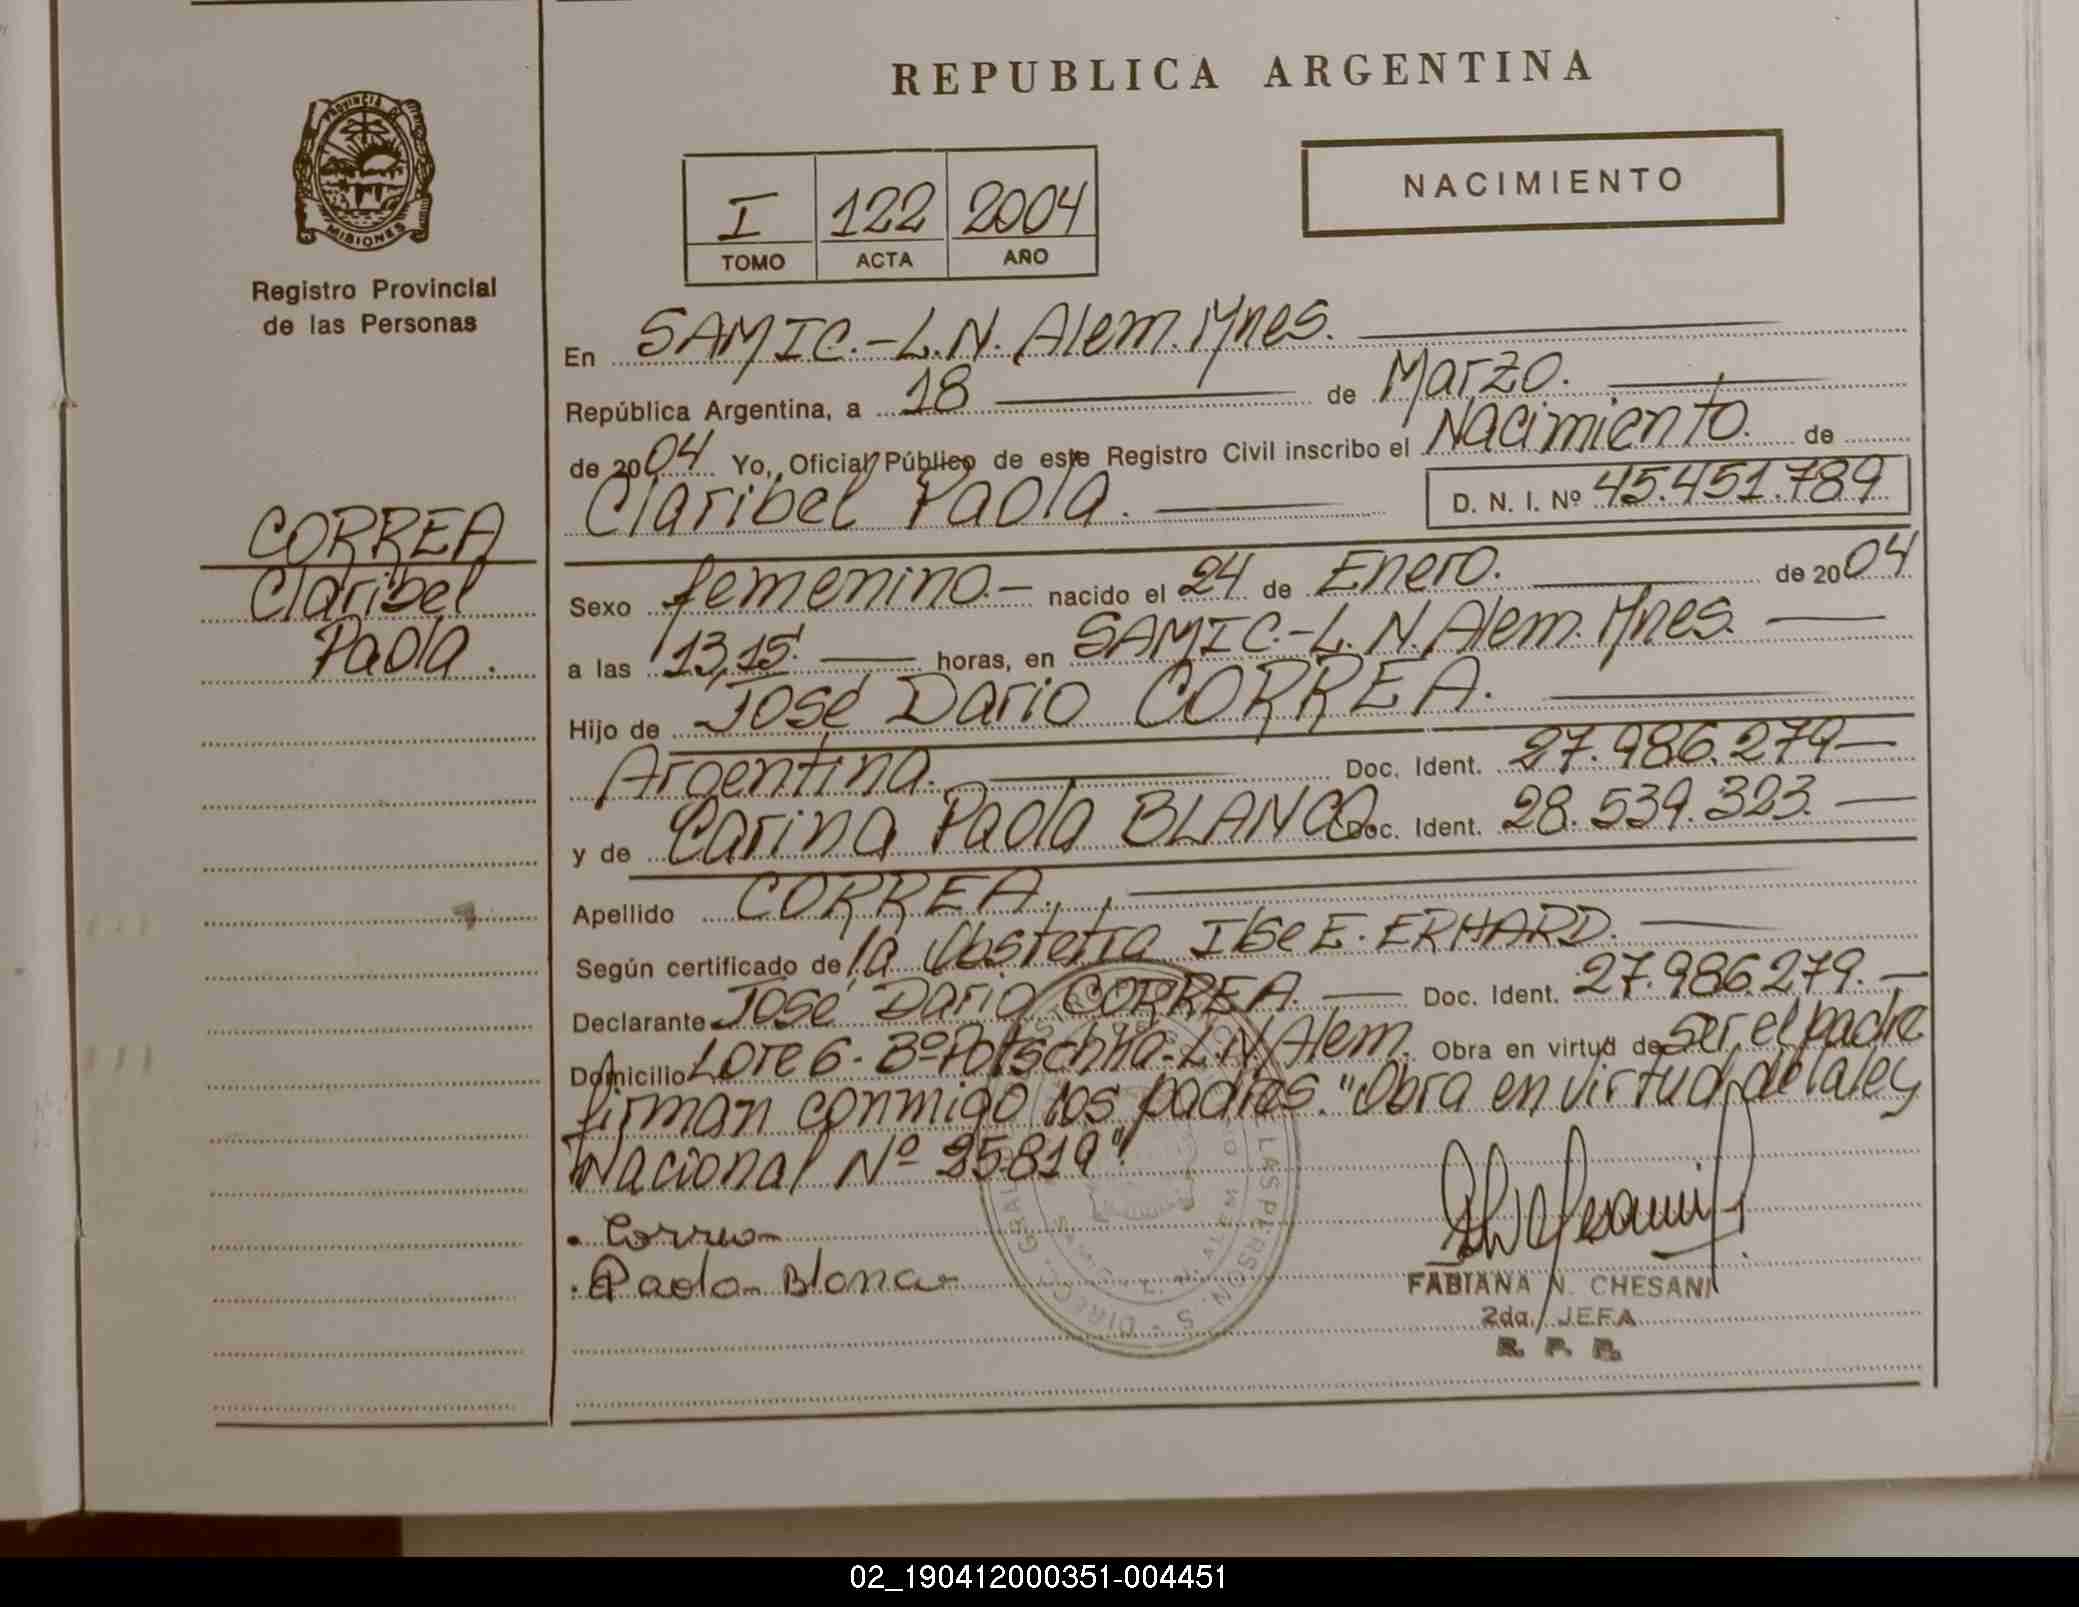 REPUBLICA ARGENTINA
PROVINCIA DE
MISIONES
Registro Provincial
de las Personas
NACIMIENTO
I 122 2004
TOMO ACTA AÑO
CORREA
Claribel
Paola.
En SAMIC.-L.N. Alem. Mnes.
República Argentina, a 18 de Marzo.
de 2004 Yo, Oficial Público de este Registro Civil inscribo el Nacimiento. de
Claribel Paola. D. N. I. Nº 45.451.789
Sexo femenino.- nacido el 24 de Enero. de 2004
a las 13,15. horas, en SAMIC.-L.N. Alem. Mnes.
Hijo de José Dario CORREA.
Argentina. Doc. Ident. 27.986.279-
y de Carina Paola BLANCO Doc. Ident. 28.539.323.
Apellido CORREA.
Según certificado de la Obstetra Ilse E. ERHARD.
Declarante José Dario CORREA. Doc. Ident. 27.986.279.-
Domicilio Lote 6- Bº L.N. Alem. Obra en virtud de ser el padre
firman conmigo los padres. "Obra en virtud de la ley
Nacional Nº 25819"
Correa
Paola Blanco
FABIANA N. CHESANI
2da. JEFA
R. P. P.
02_190412000351-004451